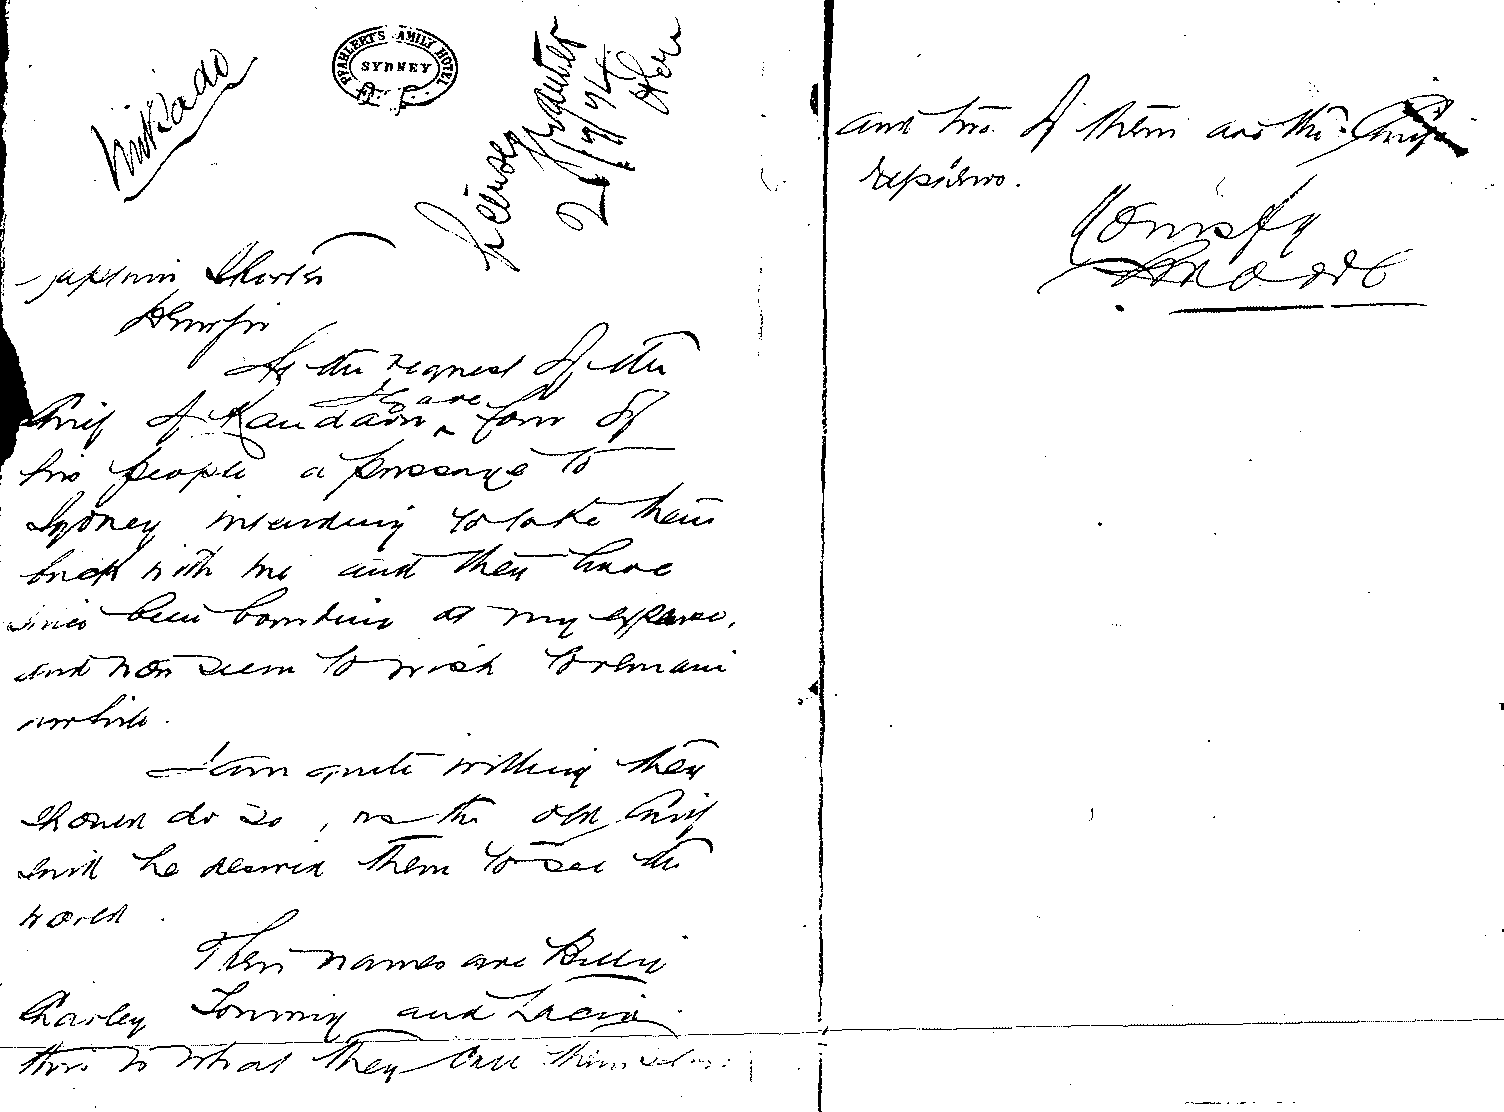 Mikado
PFAHLERT'S FAMILY HOTEL
SYDNEY
License granted
21/9/74
Captain
At the request of the
Chief of Kandavu I gave four of
his people a passage to
Sydney intending to take them
back with me and they have
since been boarding at my expense,
and now seem to wish to remain
awhile.
I am quite willing they
should do so, as the old Chief
said he desired them to see the
world.
Their names are Billy
Charley Tommy and
this is what they call themselves
and two of them are the Chiefs
nephews.